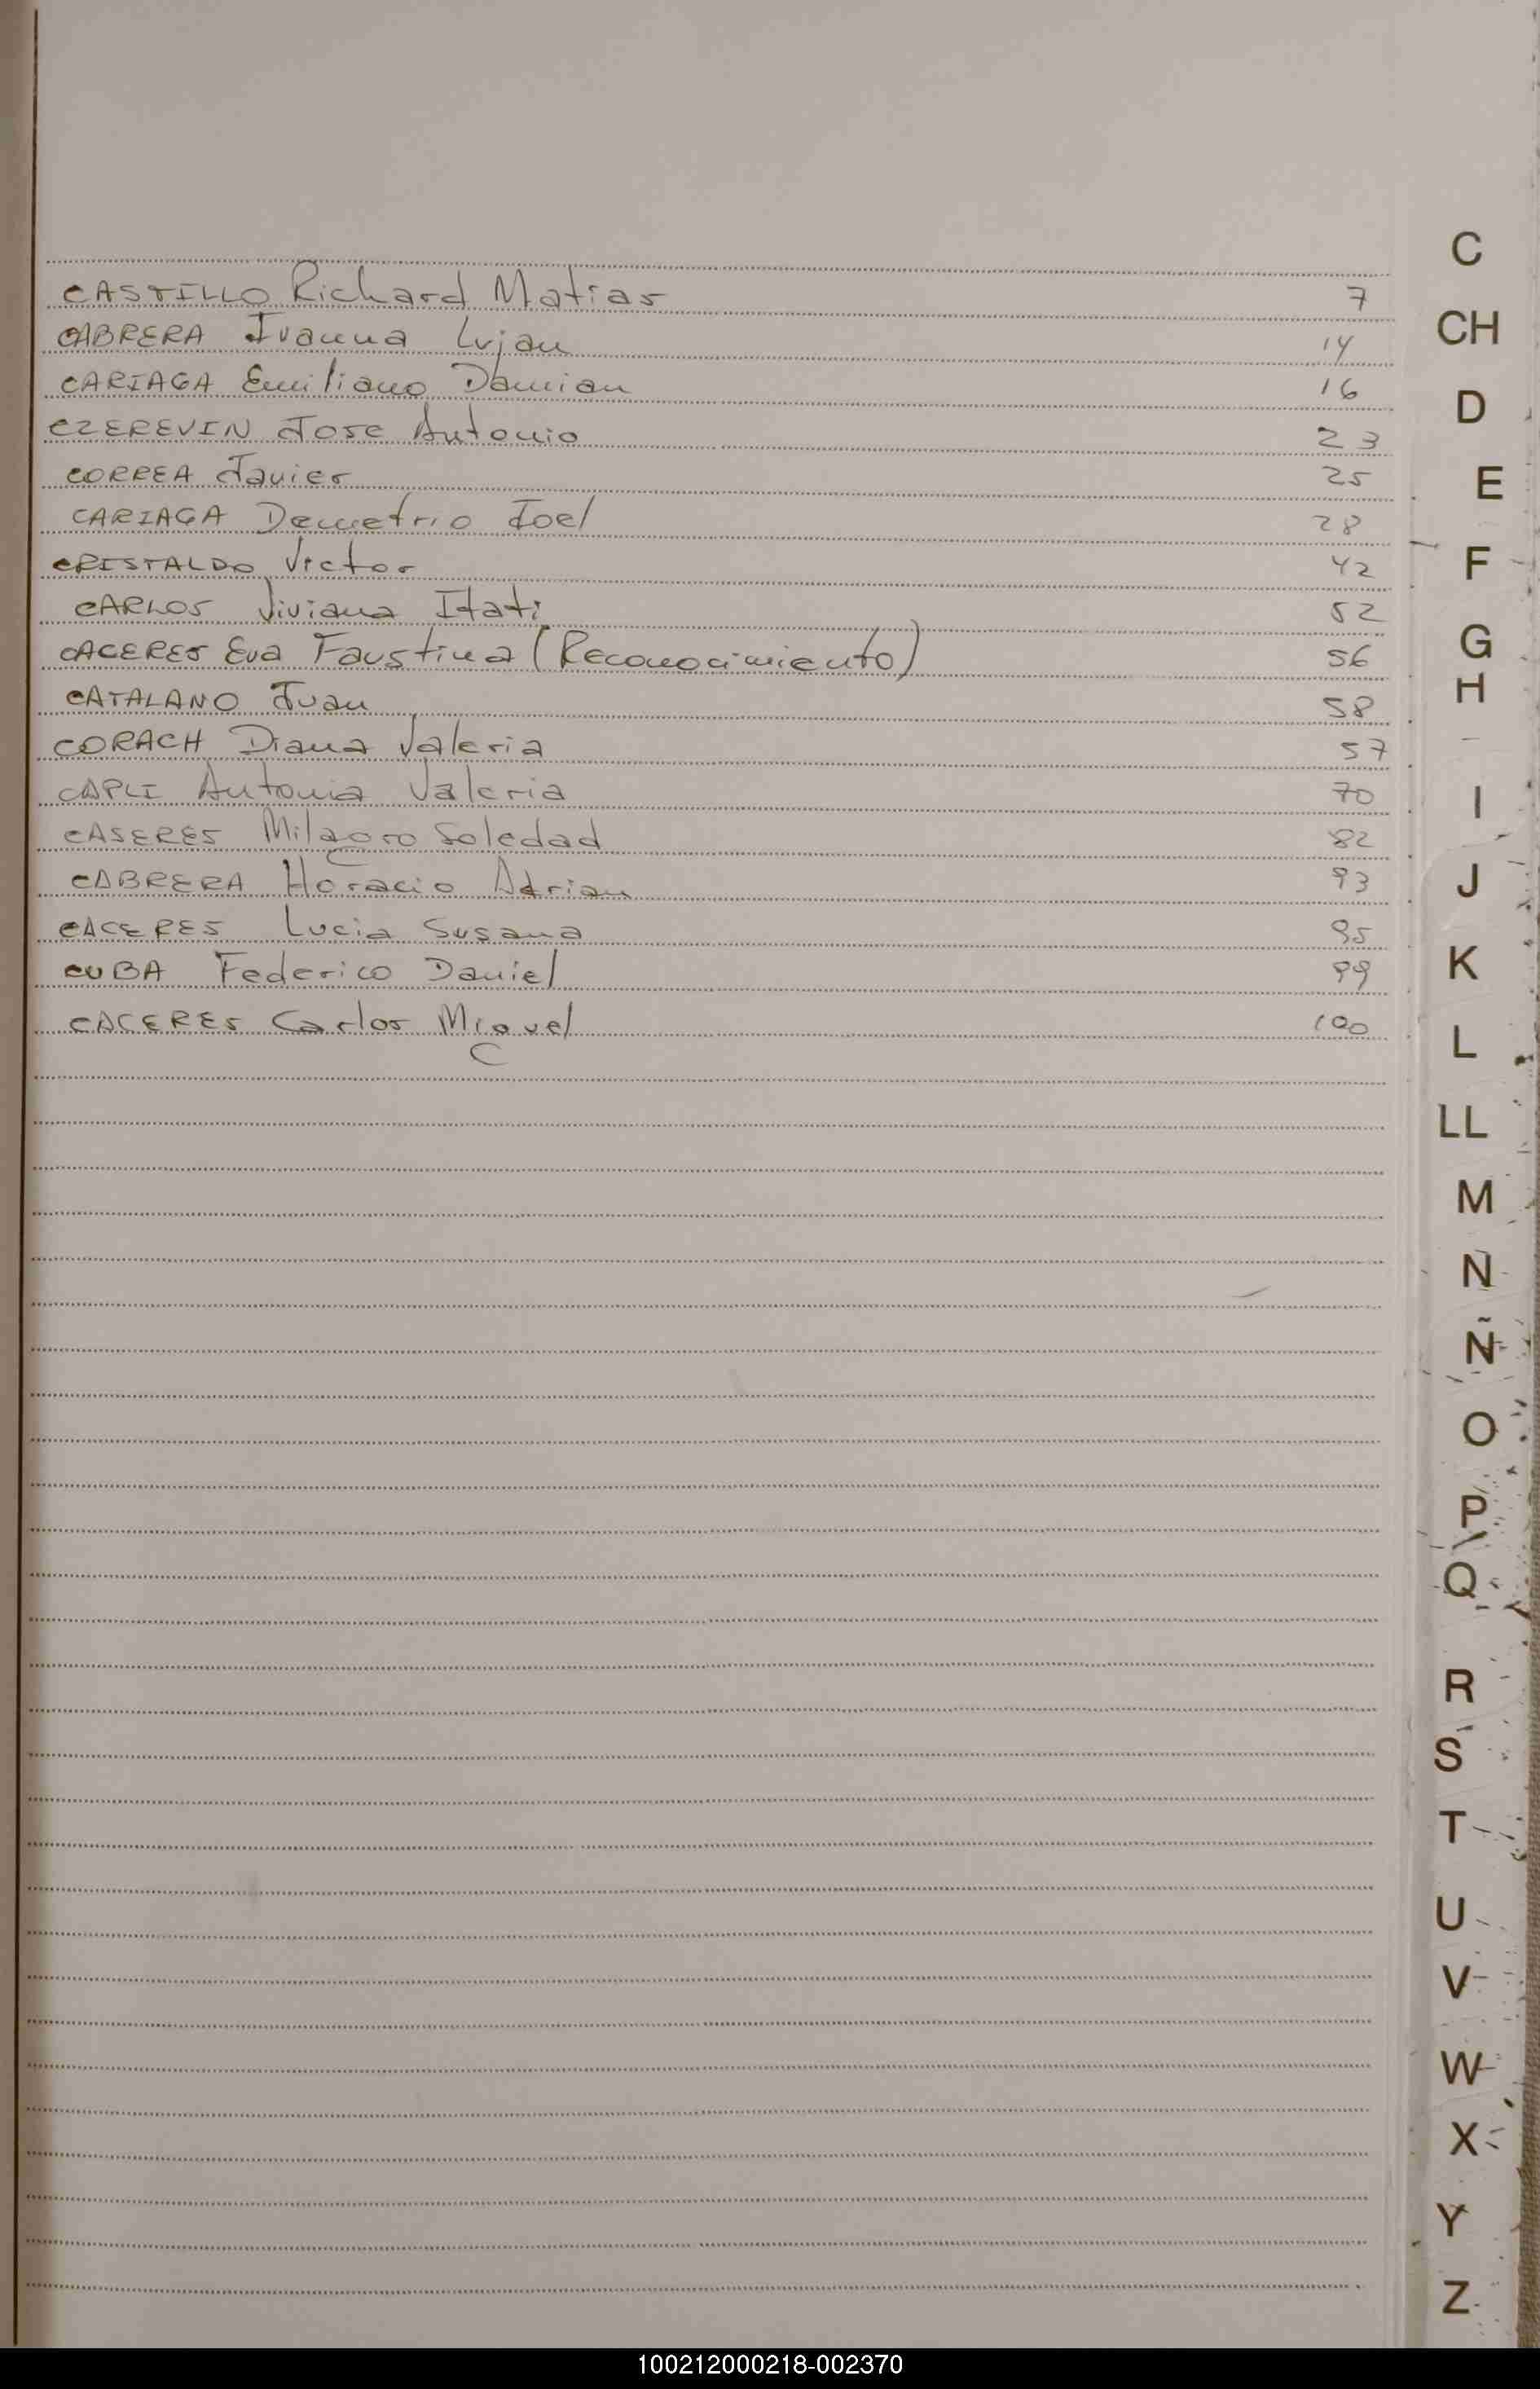 CASTILLO Richard Matias 7
CABRERA Ivanna Lujan 14
CARIAGA Emiliano Damian 16
CZEREVIN Jose Antonio 23
CORREA Javier 25
CARIAGA Demetrio Joel 28
CRISTALDO Victor 42
CARLOS Viviana Itati 52
CACERES Eva Faustina (Reconocimiento) 56
CATALANO Juan 58
CORACH Diana Valeria 57
CAPLI Antonia Valeria 70
CASERES Milagro Soledad 82
CABRERA Horacio Adrian 93
CACERES Lucia Susana 95
CUBA Federico Daniel 99
CACERES Carlos Miguel 100
C
CH
D
E
F
G
H
I
J
K
L
LL
M
N
Ñ
O
P
Q
R
S
T
U
V
W
X
Y
Z
100212000218-002370